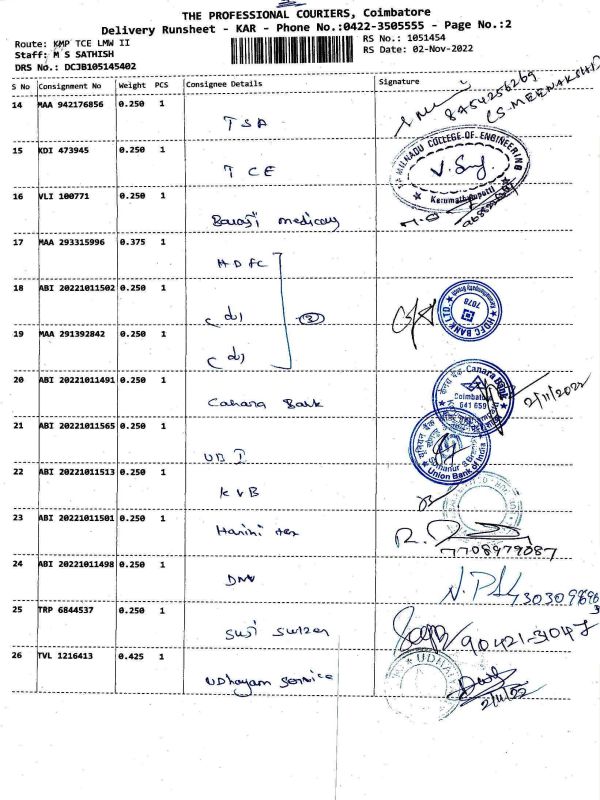 THE PROFESSIONAL COURIERS, Coimbatore
Delivery Runsheet - KAR - Phone No.:0422-3505555 - Page No.:2
Route: KMP TCE LMW II
RS No.: 1051454
Staff: M S SATHISH
RS Date: 02-Nov-2022
DRS No.: DCJB105145402
S No Consignment No Weight PCS Consignee Details Signature
8454256269
CS.MEENAKSHI
14 MAA 942176856 0.250 1
TSA
15 KDI 473945 0.250 1
TCE
TAMILNADU COLLEGE OF ENGINEERING
Karumathampatti
16 VLI 100771 0.250 1
Balaji medicals
17 MAA 293315996 0.375 1
HDFC
18 ABI 20221011502 0.250 1
(do) (3)
HDFC BANK LTD.
7078
19 MAA 291392842 0.250 1
(do)
20 ABI 20221011491 0.250 1
Canara Bank
केनरा बैंक Canara Bank
Coimbatore
641 659
2/11/2022
21 ABI 20221011565 0.250 1
UBI
यूनियन बैंक
Somanur Branch
Union Bank of India
22 ABI 20221011513 0.250 1
KVB
23 ABI 20221011501 0.250 1
Harini tex
7708979087
24 ABI 20221011498 0.250 1
DNV
25 TRP 6844537 0.250 1
Suji Sulzer
90421-31047
26 TVL 1216413 0.425 1
Udhayam Service
UDHAY
2/11/22